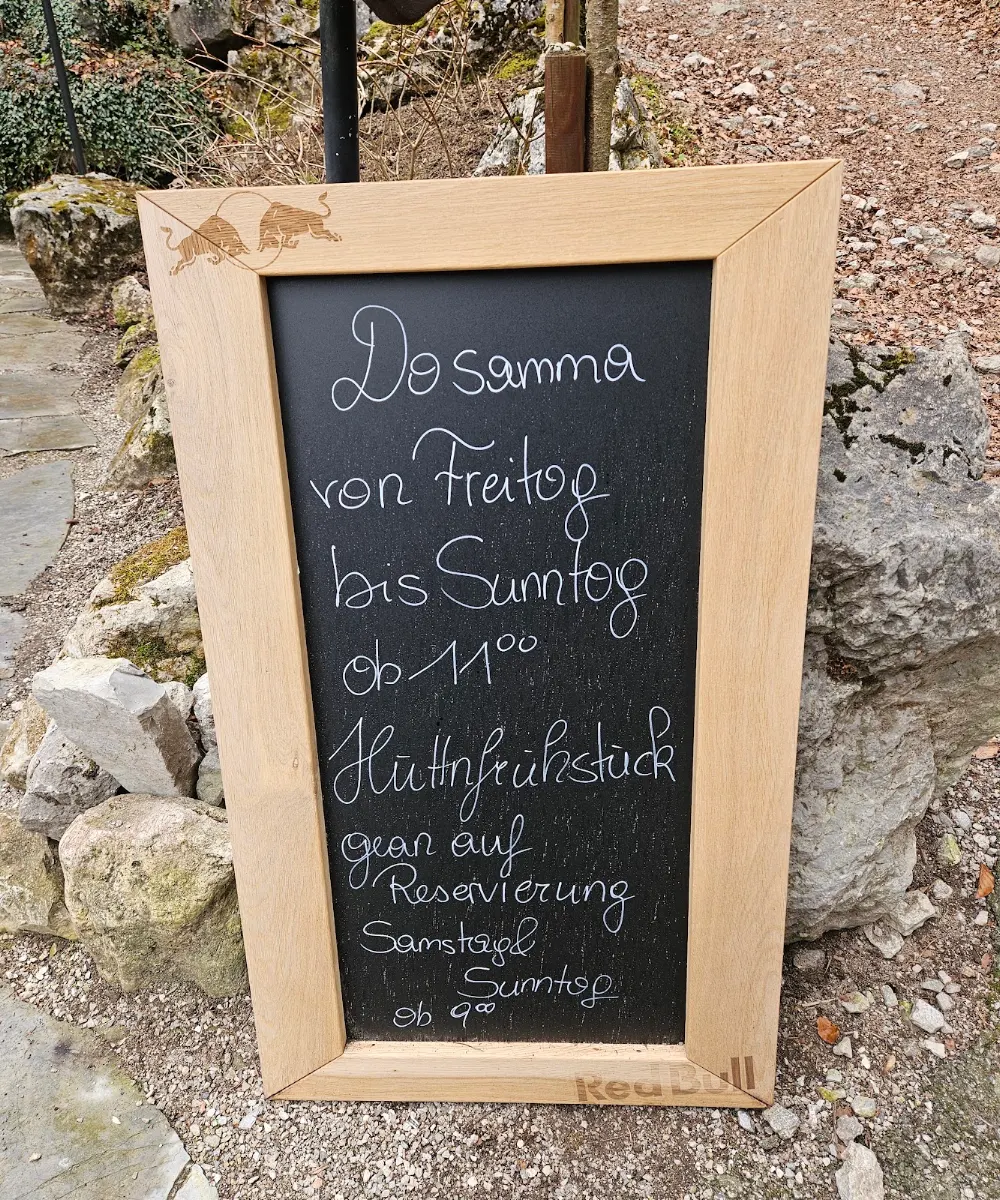 Do samma
von Freitog
bis Sunntog
ob 11⁰⁰
Hüttnfrühstück
gean auf
Reservierung
Samstog &
Sunntog
ob 9⁰⁰
Red Bull